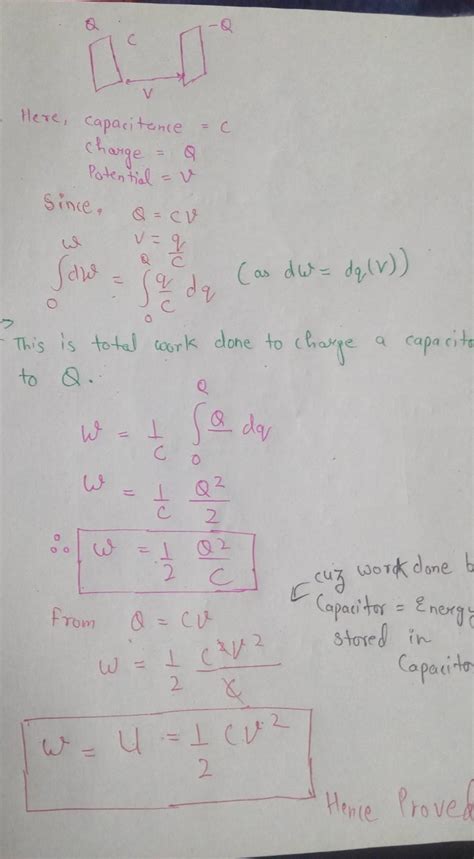 Q -Q
C
V
Here, capacitence = C
charge = Q
Potential = V
Since, Q = CV
V = q/C
∫₀ᵂ dW = ∫₀Q q/C dq (as dW = dq(V))
→ This is total work done to charge a capacito
to Q.
W = 1/C ∫₀Q Q dq
W = 1/C Q²/2
∴ W = 1/2 Q²/C
cuz work done b
Capacitor = Energy
stored in
Capacitor
from Q = CV
W = 1/2 C²V²/C
W = U = 1/2 CV²
Hence Proved